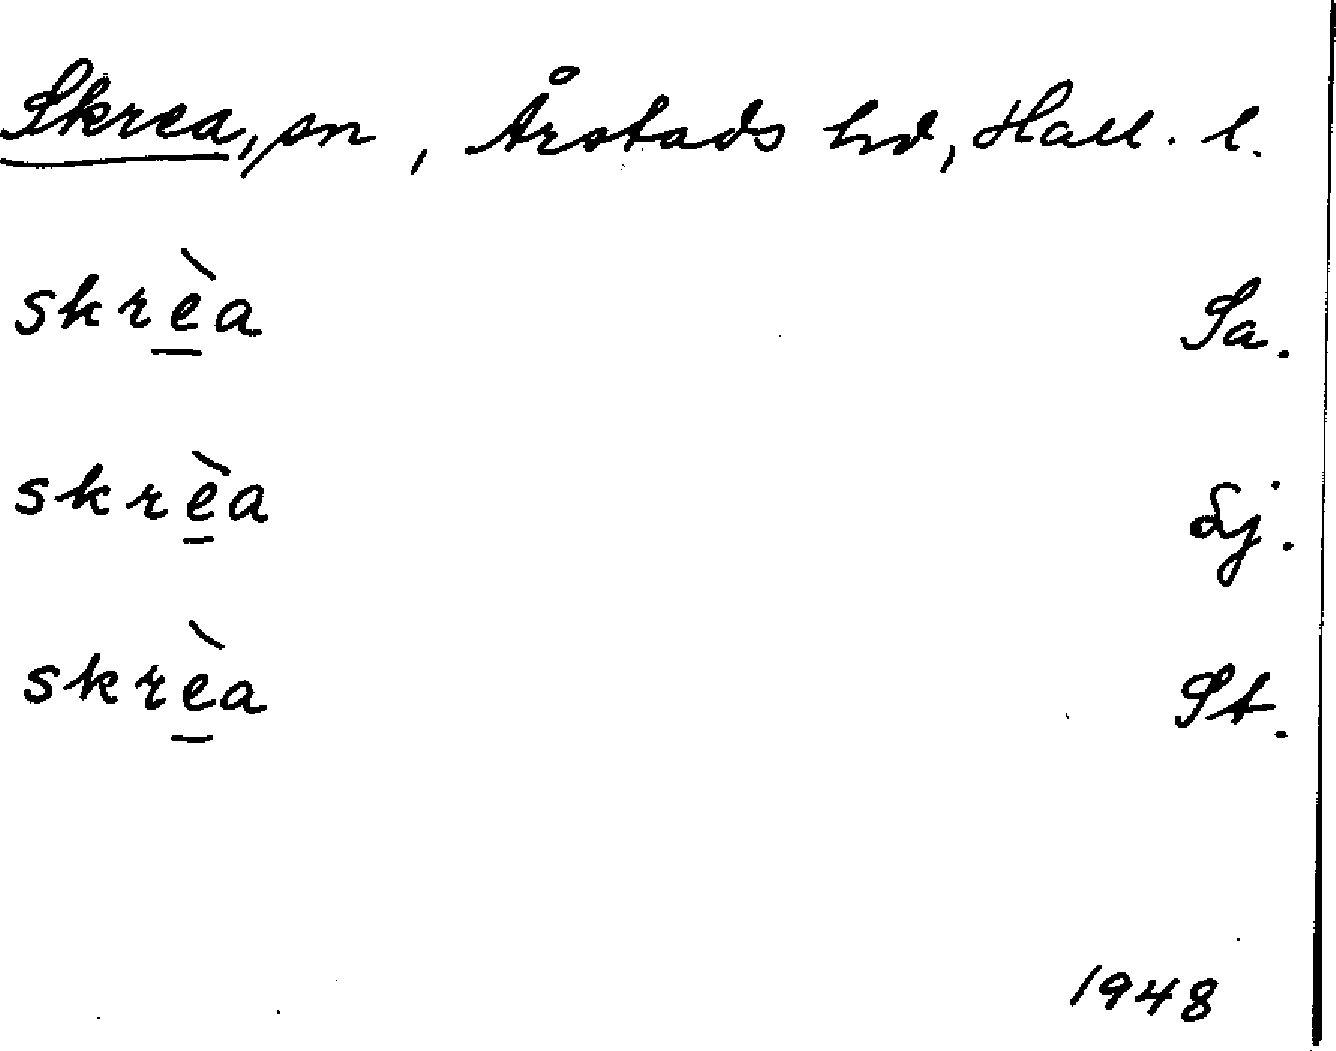 Skrea, sn, Årstads hd, Hall. l.
skrèa Sa.
skrèa Sj.
skrèa St.
1948